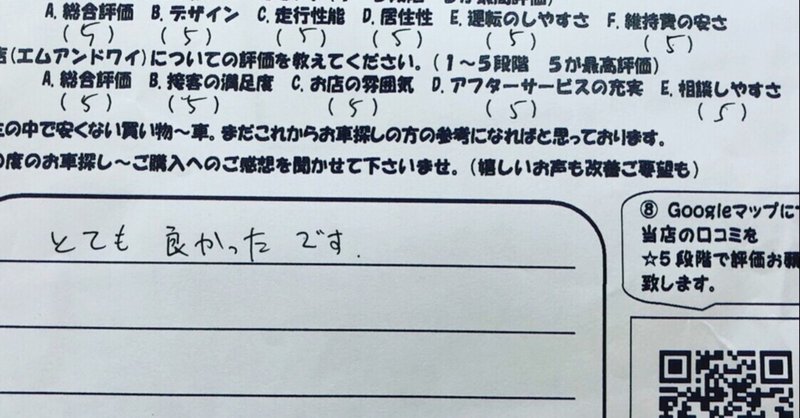 が最高評価)
A.総合評価 B.デザイン C.走行性能 D.居住性 E.運転のしやすさ F.維持費の安さ
(5) (5) (5) (5) (5) (5)
店(エムアンドワイ)についての評価を教えてください。(1～5段階 5が最高評価)
A.総合評価 B.接客の満足度 C.お店の雰囲気 D.アフターサービスの充実 E.相談しやすさ
(5) (5) (5) (5) (5)
の中で安くない買い物～車。まだこれからお車探しの方の参考になればと思っております。
度のお車探し～ご購入へのご感想を聞かせて下さいませ。(嬉しいお声も改善ご要望も)
とても 良かった です.
⑧ Googleマップに
当店の口コミを
☆5段階で評価お願
致します。